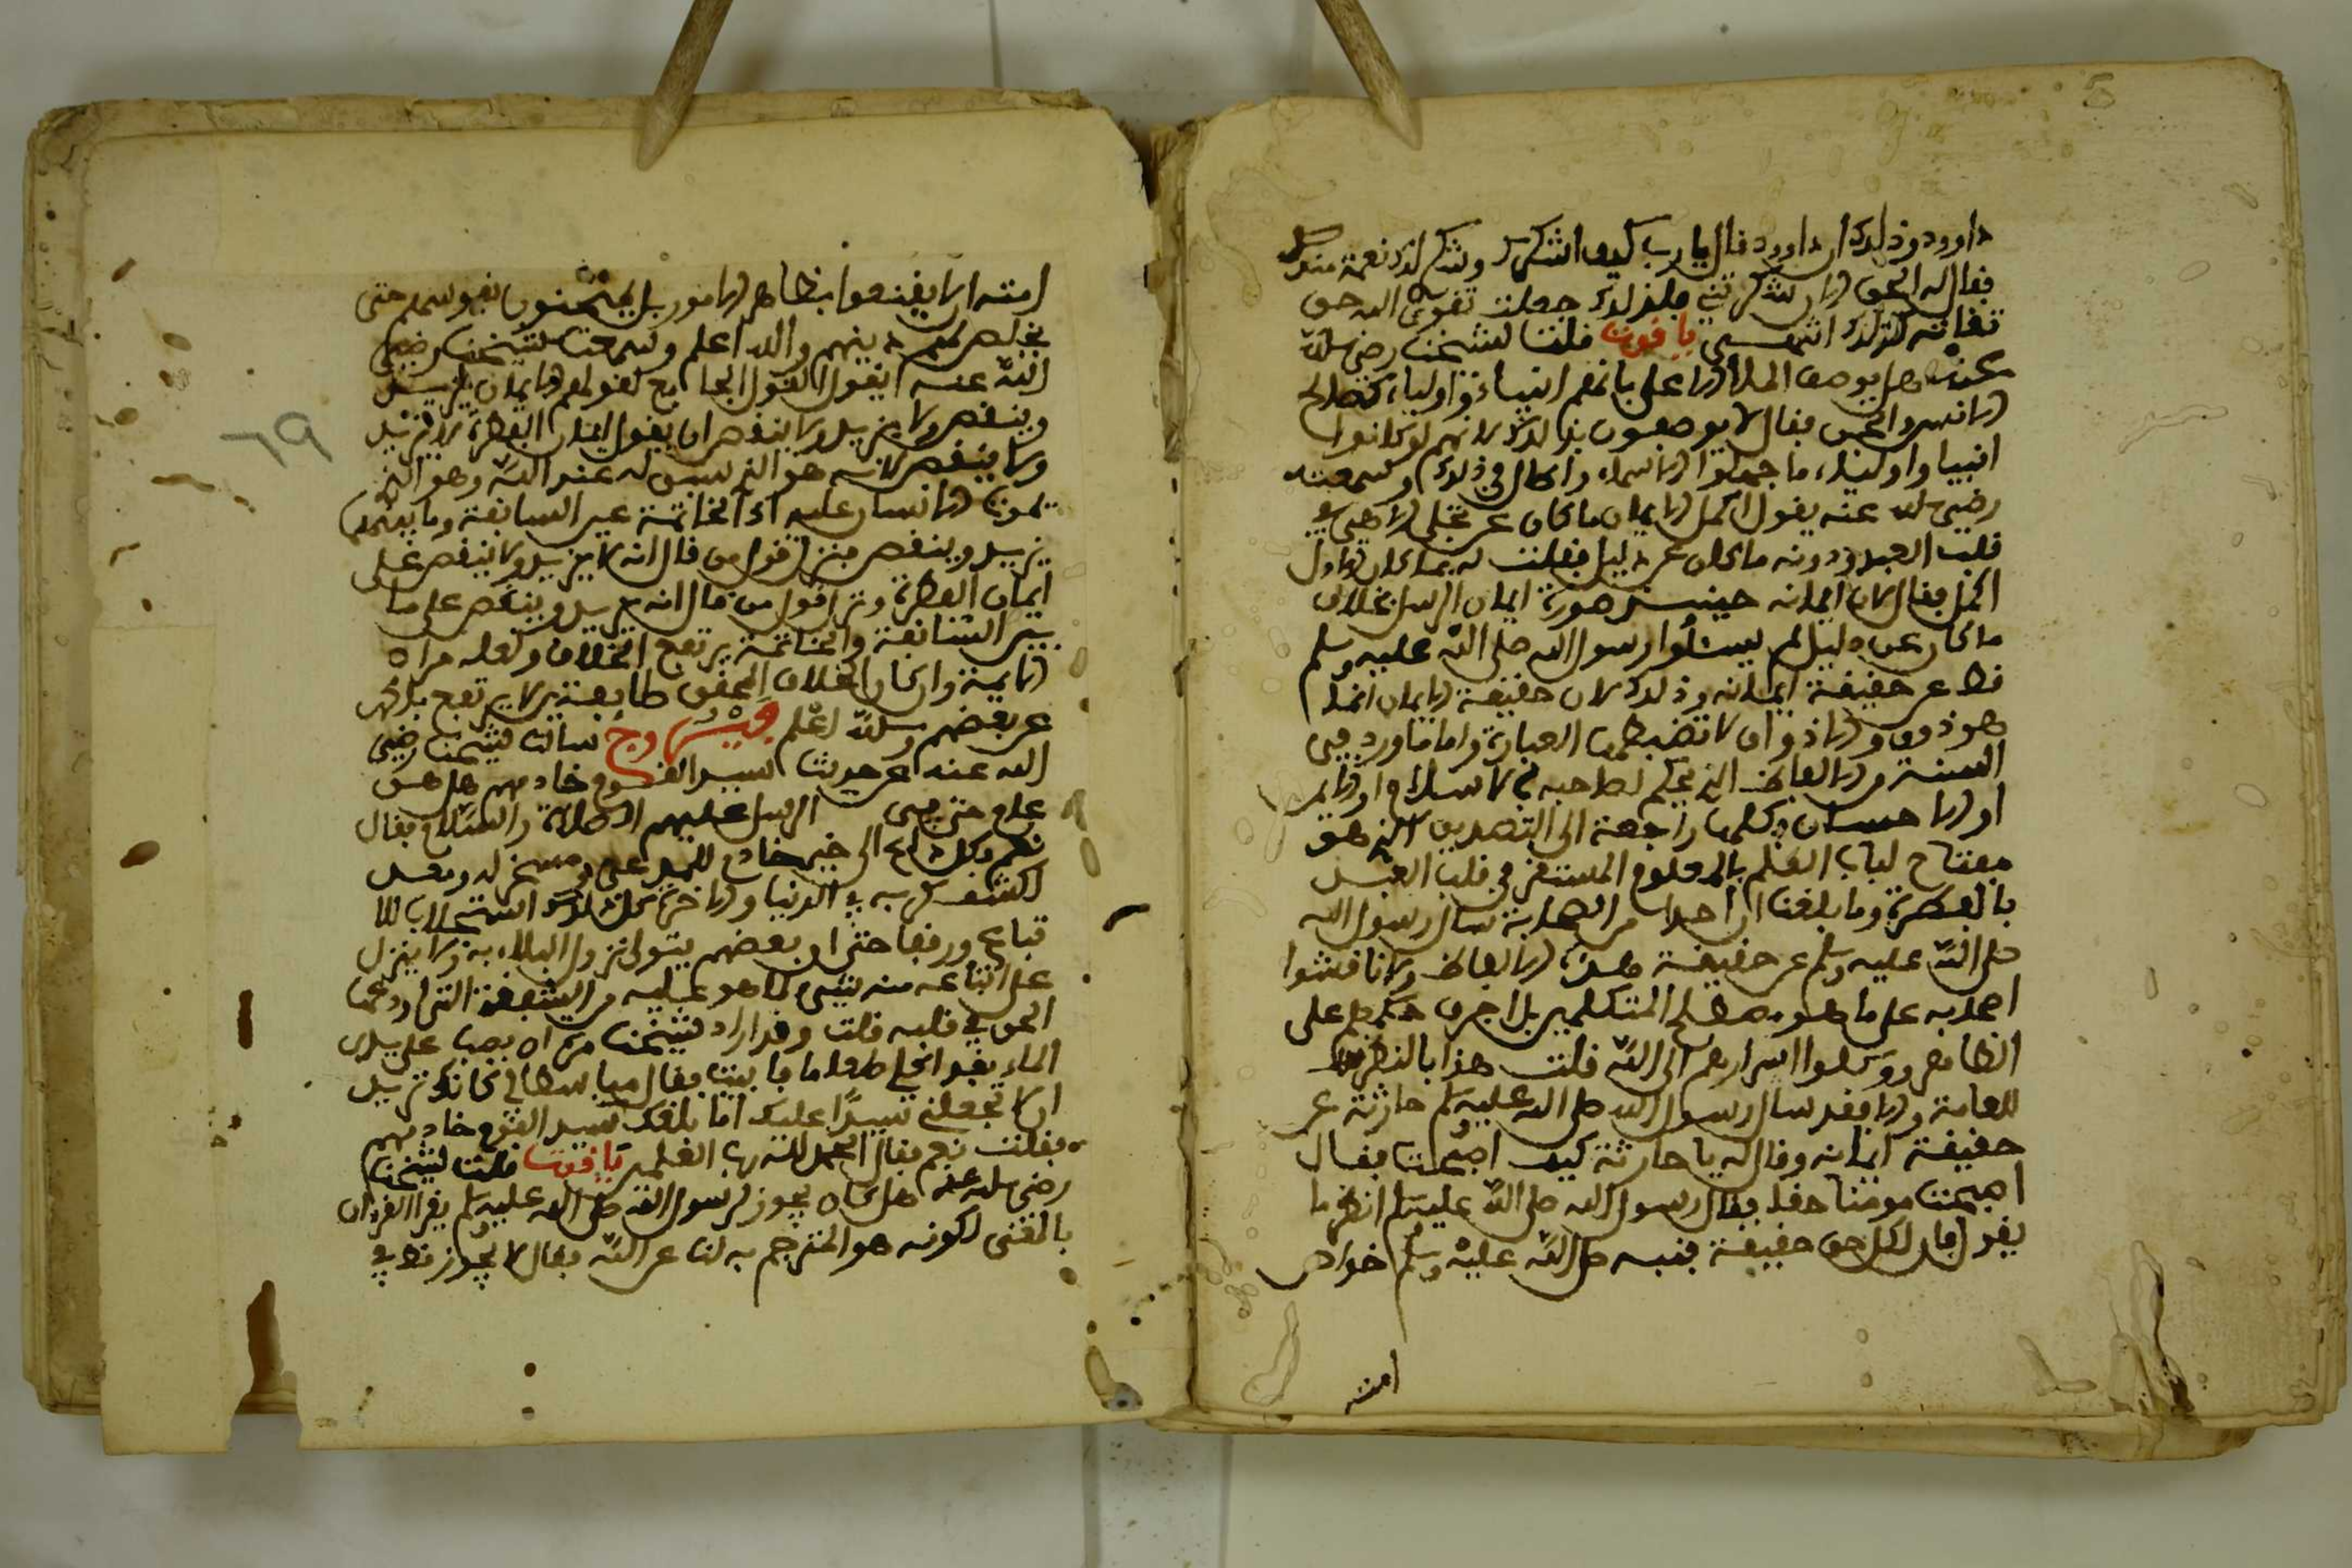 5
داوود وذلك ان داوود قال يارب كيف اشكرك وشكر لك نعمة منك
فقال له الحق الان شكرتني فلذلك جعلت تقوى الله حق
تقاته كذلك انتهى ياقوت قلت لشيخنا رضي الله
عنه هل يوصف الملأ الاعلى بانهم انبياء واولياء كصالح
الانس والجن فقال لا يوصفون بذلك لانهم لو كانوا
انبيا واولياء ما جهلوا الاسماء واطال في ذلك وسمعته
رضي الله عنه يقول اكمل الايمان ما كان عن تجلى الاهي في
قلب العبد ودونه ما كان عن دليل فقلت له بما كان الاول
اكمل فقال لان ايمانه حينئذ صورة ايمان الرسل بخلاف
ما كان عن دليل لم يسئلوا رسول الله صلى الله عليه وسلم
قط عن حقيقة ايمانه وذلك لان حقيقة الايمان انما
هو ذوق والاذواق لا تضبطها العبارة واما ما ورد في
السنة من الالفاظ التي يحكم لصاحبها بالاسلام او الايمان
او الاحسان فكلها راجعة الى التصديق الذي هو
مفتاح لباب العلم بالمعلوم المستقر في قلب العبد
بالفطرة وما بلغنا ان احدا من الصحابة سال رسول الله
صلى الله عليه وسلم عن حقيقة هذه الالفاظ ولا ناقشوا
اصحابه على ما هو مصطلح المتكلمين بل اجرى حكمهم على
الظاهر ووكلوا اسرارهم الى الله قلت هذا بالنظر
للعامة والا فقد سال رسول الله صلى الله عليه وسلم حارثة عن
حقيقة ايمانه وقال له يا حارثة كيف اصبحت فقال
اصبحت مومنا حقا فقال رسول الله صلى الله عليه وسلم انظر ما
يقول فان لكل حق حقيقة فنبه صلى الله عليه وسلم خواص
امته
امته ان لا يقنعوا بظاهر الامور بل يمتحنون نفوسهم حتى
يخلص لهم دينهم والله اعلم وسمعت شيخنا رضي
الله عنه يقول القول الجامع لقولهم الايمان يزيد
وينقص ولا يزيد ولا ينقص ان يقول ايمان الفطرة لا يزيد
ولا ينقص لانه هو الذي سبق له عند الله وهو الذي
يموت الانسان عليه اذ الخاتمة عين السابقة وما بينهما
يزيد وينقص فنزل قول من قال انه لا يزيد ولا ينقص على
ايمان الفطرة ونزل قول من قال انه يزيد وينقص على ما
بين السابقة والخاتمة يرتفع الخلاف ولعله مراد
الايمة وان كان الخلاف المحقق طايفة لا يرتفع بل
عن بعضهم والله اعلم فيروزج سالت شيخنا رضي
الله عنه عن حديث سيد القوم خادمهم هل هو
عام حتى في الرسل عليهم الصلاة والسلام فقال
نعم فكل داع الى خير خادم للمدعو ومسخر له ومعد
لكشف كربه في الدنيا والاخرة كل ذلك استجلاب للا
تباع ورفقا حتى ان بعضهم يتولى نزول البلاء به ولا ينزل
على اتباعه منه شيء كما هو عليه من الشفقة التي اودعها
الحق في قلبه قلت وقد اراد شيخنا مرة ان يصب على يدي
الماء بعد اكلي طعاما فابيت فقال مباسطا لي كانك تريد
ان لا تجعلني سيدا عليك اما بلغك سيد القوم خادمهم
فقلت نعم فقال الحمد لله رب العلمين ياقوت قلت لشيخنا
رضي الله عنه هل كان يجوز لرسول الله صلى الله عليه وسلم يقرا القرءان
بالمعنى لكونه هو المترجم به لنا عن الله فقال لا يجوز قط في
٦٩